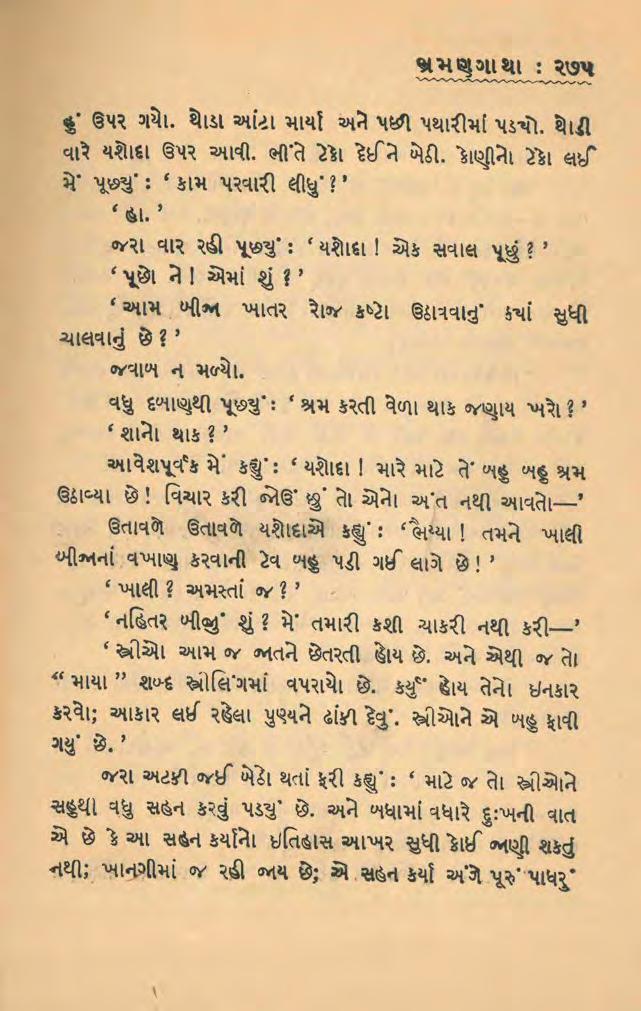 શ્રમણગાથા : ૨૭૫
હું ઉપર ગયો. થોડા આંટા માર્યા અને પછી પથારીમાં પડ્યો. થોડી
વારે યશોદા ઉપર આવી. ભીંતે ટેકો દેઈને બેઠી. કોણીનો ટેકો લઈ
મેં પૂછ્યું : ‘ કામ પરવારી લીધું ? ’
‘ હા. ’
જરા વાર રહી પૂછ્યું : ‘ યશોદા ! એક સવાલ પૂછું ? ’
‘ પૂછો ને ! એમાં શું ? ’
‘ આમ બીજા ખાતર રોજ કષ્ટો ઉઠાવવાનું ક્યાં સુધી
ચાલવાનું છે ? ’
જવાબ ન મળ્યો.
વધુ દબાણથી પૂછ્યું : ‘ શ્રમ કરતી વેળા થાક જણાય ખરો ? ’
‘ શાનો થાક ? ’
આવેશપૂર્વક મેં કહ્યું : ‘ યશોદા ! મારે માટે તેં બહુ બહુ શ્રમ
ઉઠાવ્યા છે ! વિચાર કરી જોઉં છું તો એનો અંત નથી આવતો—’
ઉતાવળે ઉતાવળે યશોદાએ કહ્યું : ‘ભૈય્યા ! તમને ખાલી
બીજાનાં વખાણ કરવાની ટેવ બહુ પડી ગઈ લાગે છે ! ’
‘ ખાલી ? અમસ્તાં જ ? ’
‘નહિતર બીજું શું ? મેં તમારી કશી ચાકરી નથી કરી—’
‘ સ્ત્રીઓ આમ જ જાતને છેતરતી હોય છે. અને એથી જ તો
“ માયા ” શબ્દ સ્ત્રીલિંગમાં વપરાયો છે. કર્યું હોય તેનો ઇનકાર
કરવો; આકાર લઈ રહેલા પુણ્યને ઢાંકી દેવું. સ્ત્રીઓને એ બહુ ફાવી
ગયું છે. ’
જરા અટકી જઈ બેઠો થતાં ફરી કહ્યું : ‘ માટે જ તો સ્ત્રીઓને
સહુથી વધુ સહન કરવું પડ્યું છે. અને બધામાં વધારે દુઃખની વાત
એ છે કે આ સહન કર્યાનો ઇતિહાસ આખર સુધી કોઈ જાણી શકતું
નથી; ખાનગીમાં જ રહી જાય છે; એ સહન કર્યા અંગે પૂરું પાધરું